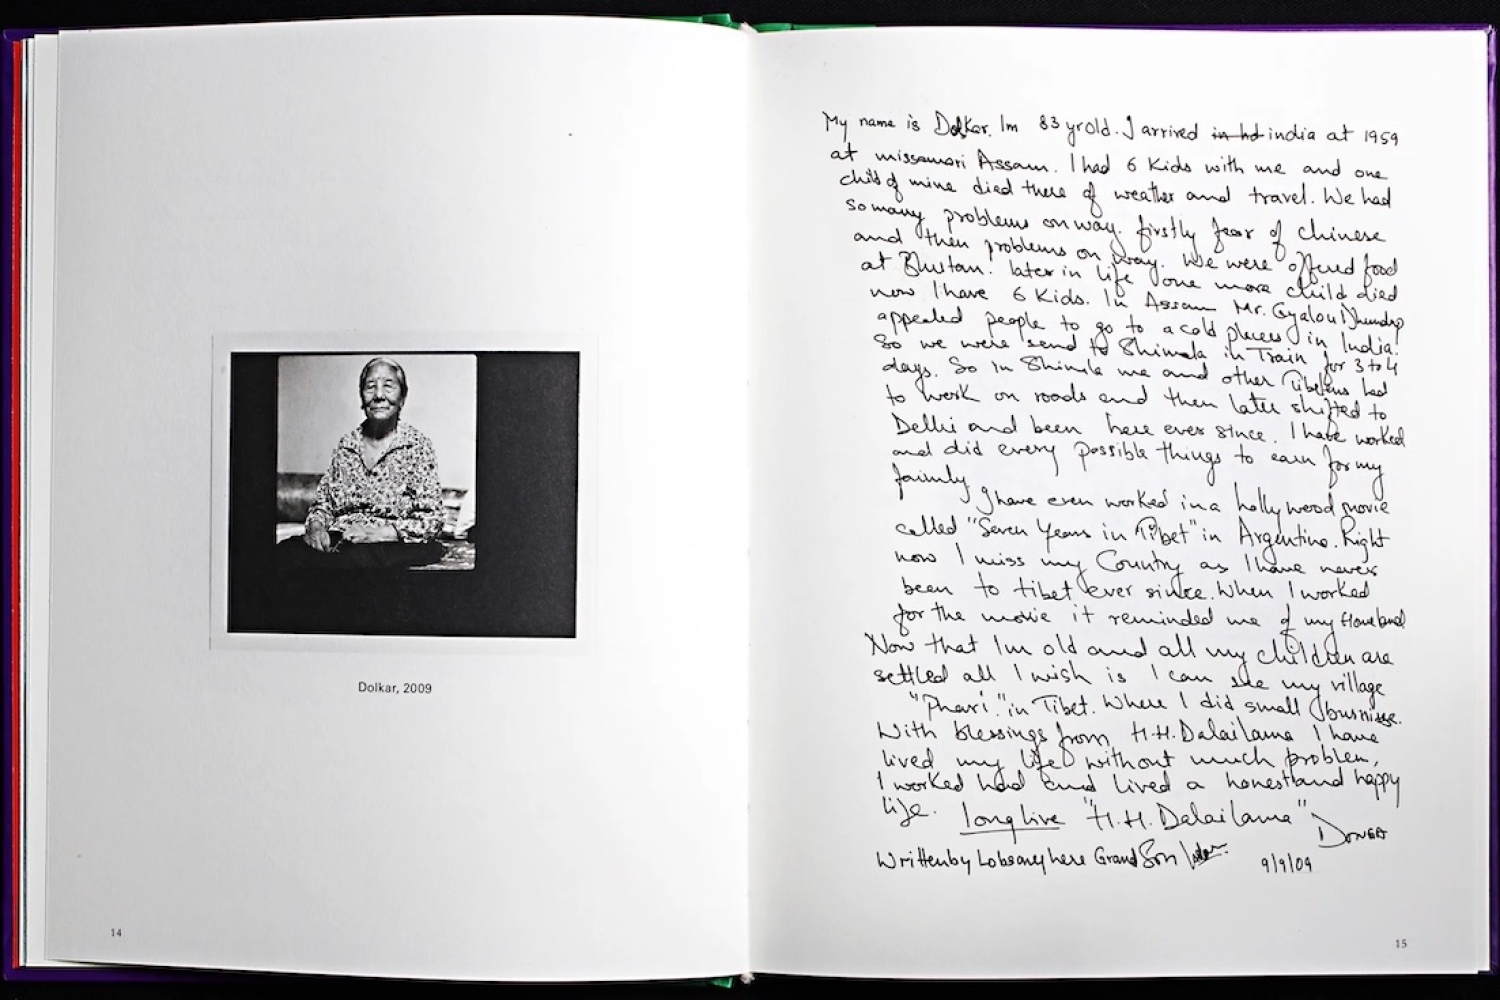 Dolkar, 2009
14
My name is Dolkar. Im 83 yr old. I arrived in hd india at 1959
at missamari Assam. I had 6 Kids with me and one
child of mine died there of weather and travel. We had
so many problems on way. firstly fear of chinese
and then problems on way. We were offered food
at Bhutan. later in life one more child died
now I have 6 Kids. In Assam Mr. Gyalou Dhundup
appealed people to go to a cold places in India.
So we were send to Shimala in Train for 3 to 4
days. So in Shimla me and other Tibetans had
to work on roads and then later shifted to
Delhi and been here ever since. I have worked
and did every possible things to earn for my
faimly
I have even worked in a hollywood movie
called "Seven Years in Tibet" in Argentina. Right
now I miss my Country as I have never
been to tibet ever since. When I worked
for the movie it reminded me of my Homeland
Now that Im old and all my children are
settled all I wish is I can see my village
"Phari." in Tibet. Where I did small
With blessings from H.H. Dalailama I have
lived my life without much problem,
I worked had and lived a honest and happy
life. long live "H.H. Dalailama"
Writtenby Lobsang here Grand Son
9/9/09
15